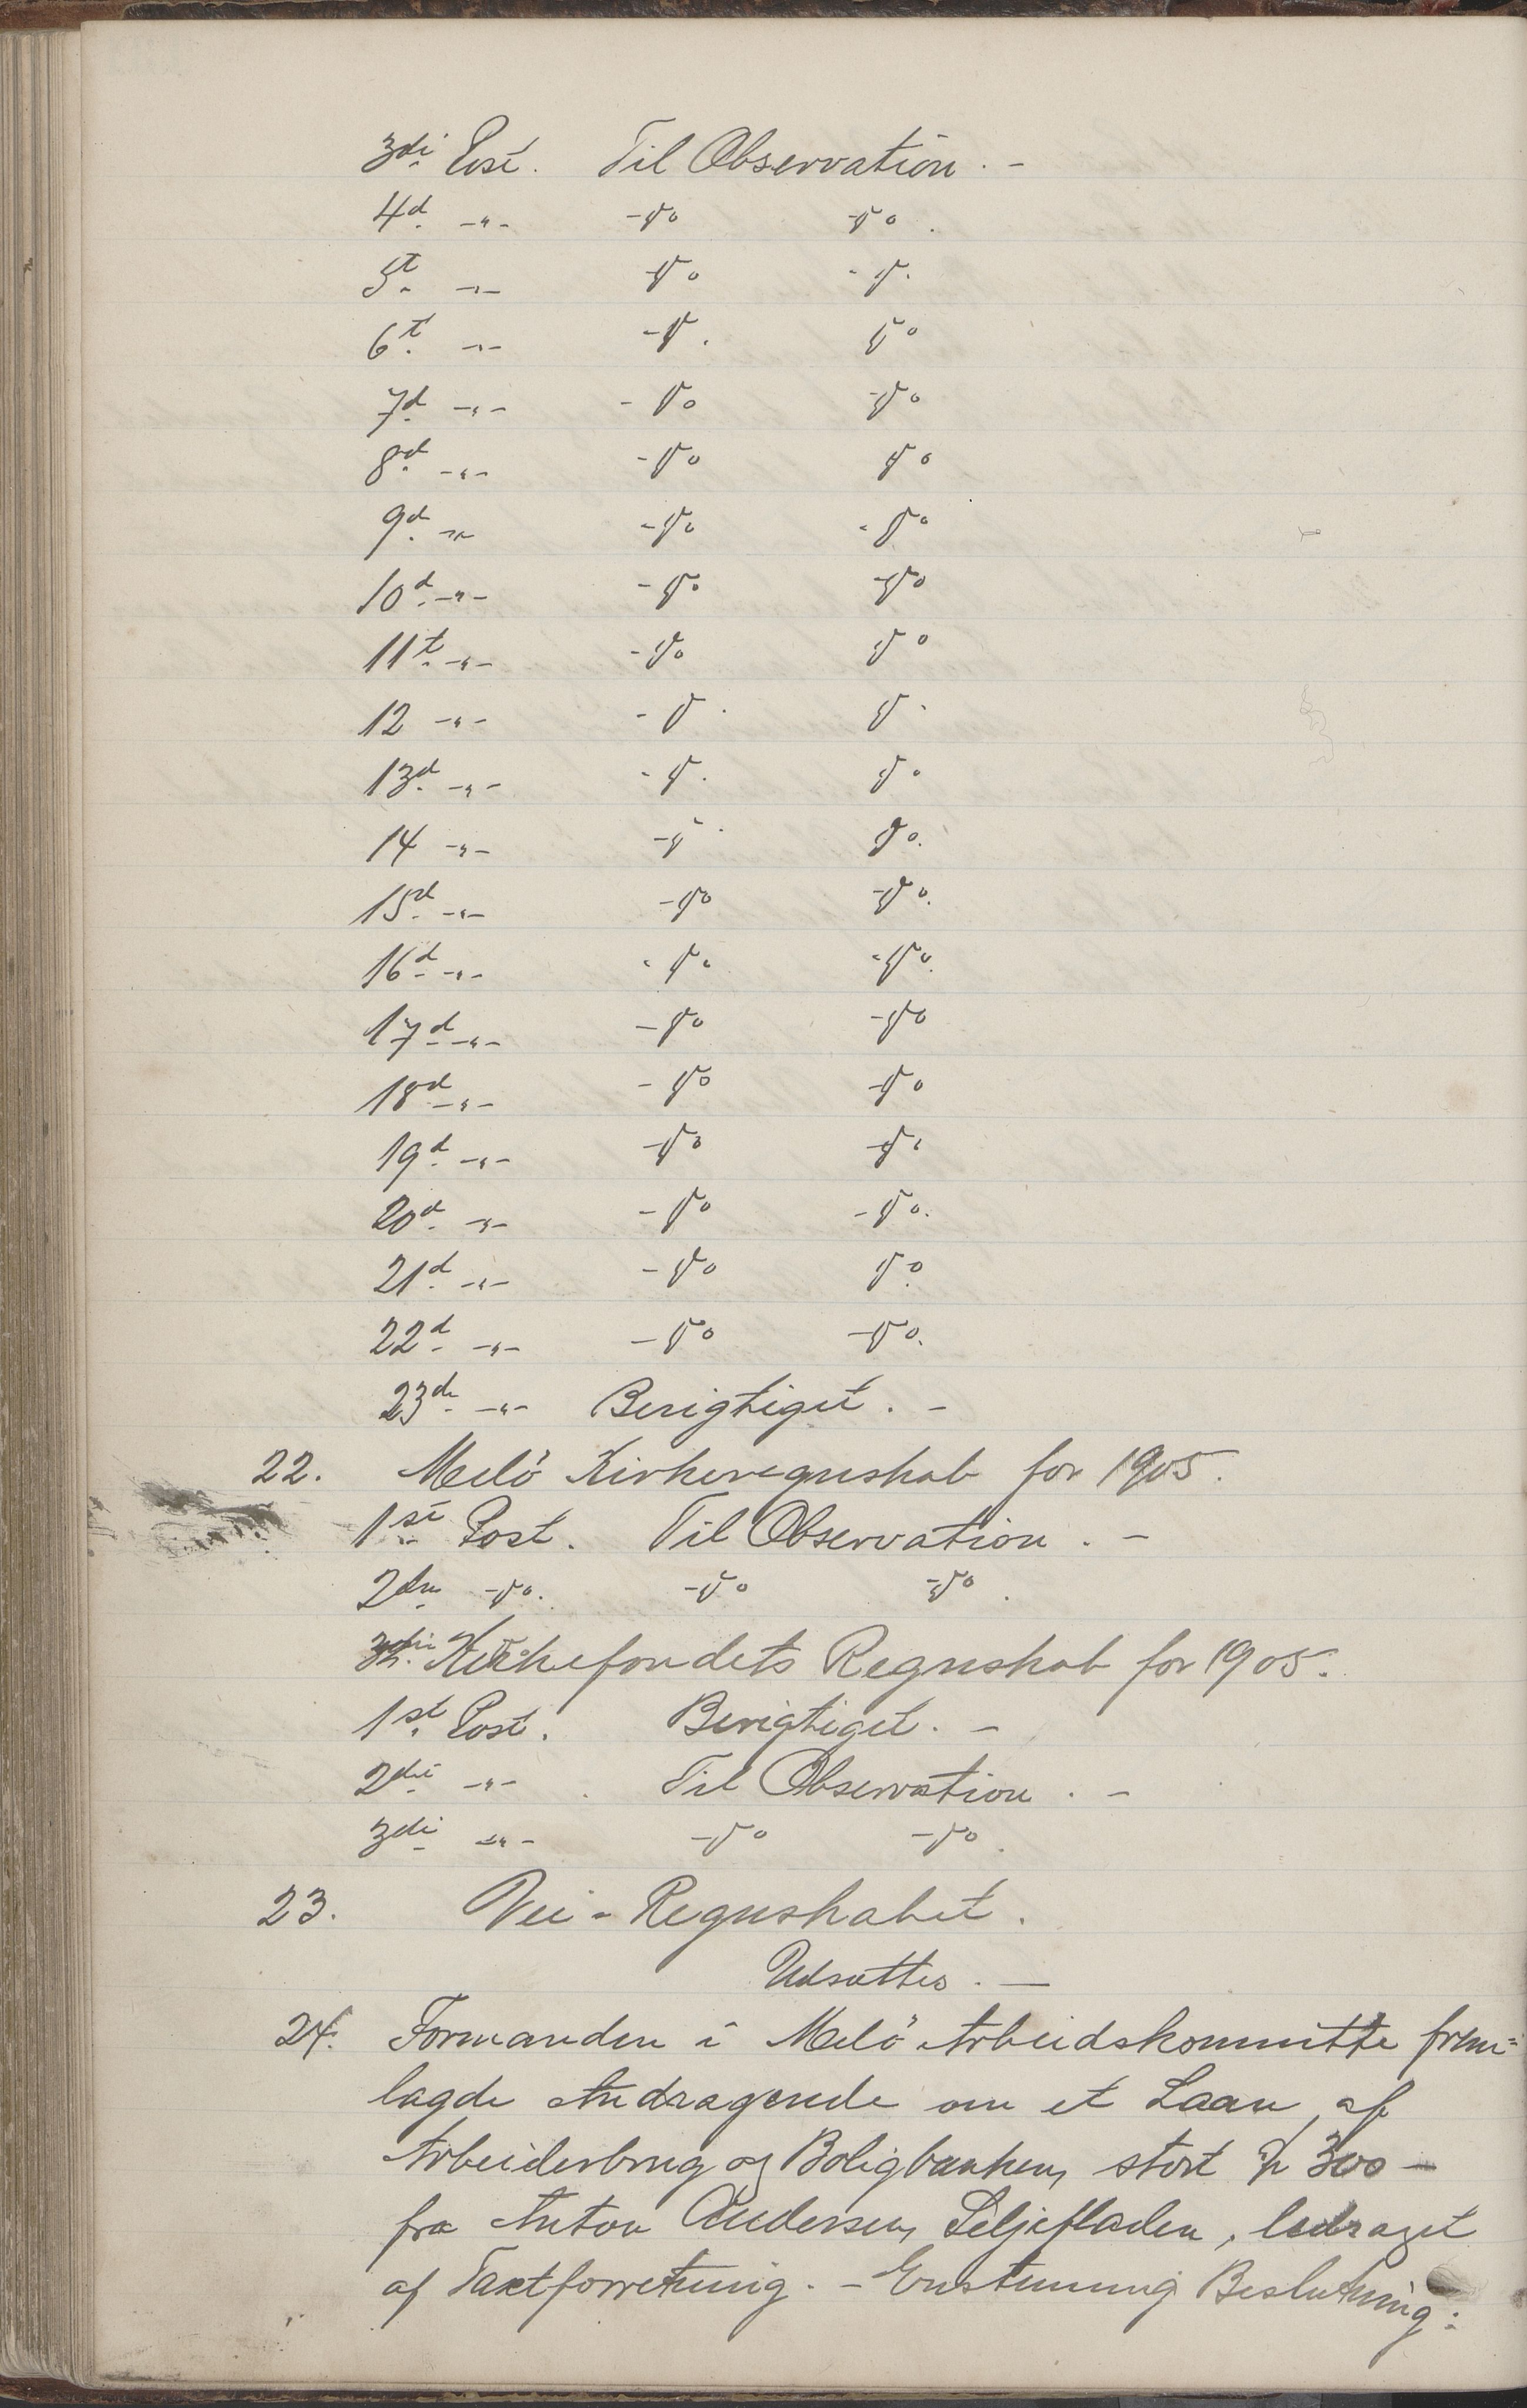 3die Post. Til Observation. -
4d -"- -do -do.
5t -"- -do -do.
6t -"- -do. do
7d -"- -do -do
8d -"- -do do
9d -"- -do -do
10d -"- -do -do
11t -"- -do do
12 -"- -do. do.
13d -"- -do. do
14 -"- -do. do.
15d -"- -do -do.
16d -"- -do -do.
17d -"- -do -do
18d -"- -do -do
19d -"- -do -do
20d -"- -do -do.
21d -"- -do do.
22d -"- -do -do.
23de -"- Berigtiget. -
22. Melö Kirkeregnskab for 1905.
1ste Post. Til Observation. -
2den -do. -do -do.
Kirkefondets Regnskab for 1905.
1st Post. Berigtiget. -
2die -"- Til Observation. -
3die -"- -do -do.
23. Vei-Regnskabet.
Udsattes. -
24. Formanden i Melö Arbeidskommitte frem=
lagde Andragende om et Laan af
Arbeiderbrug og Boligbanken, stort kr 300 -
fra Anton Andersen, Seljefladen, ledsaget
af Taxtforretning. - Enstemmig Beslutning: